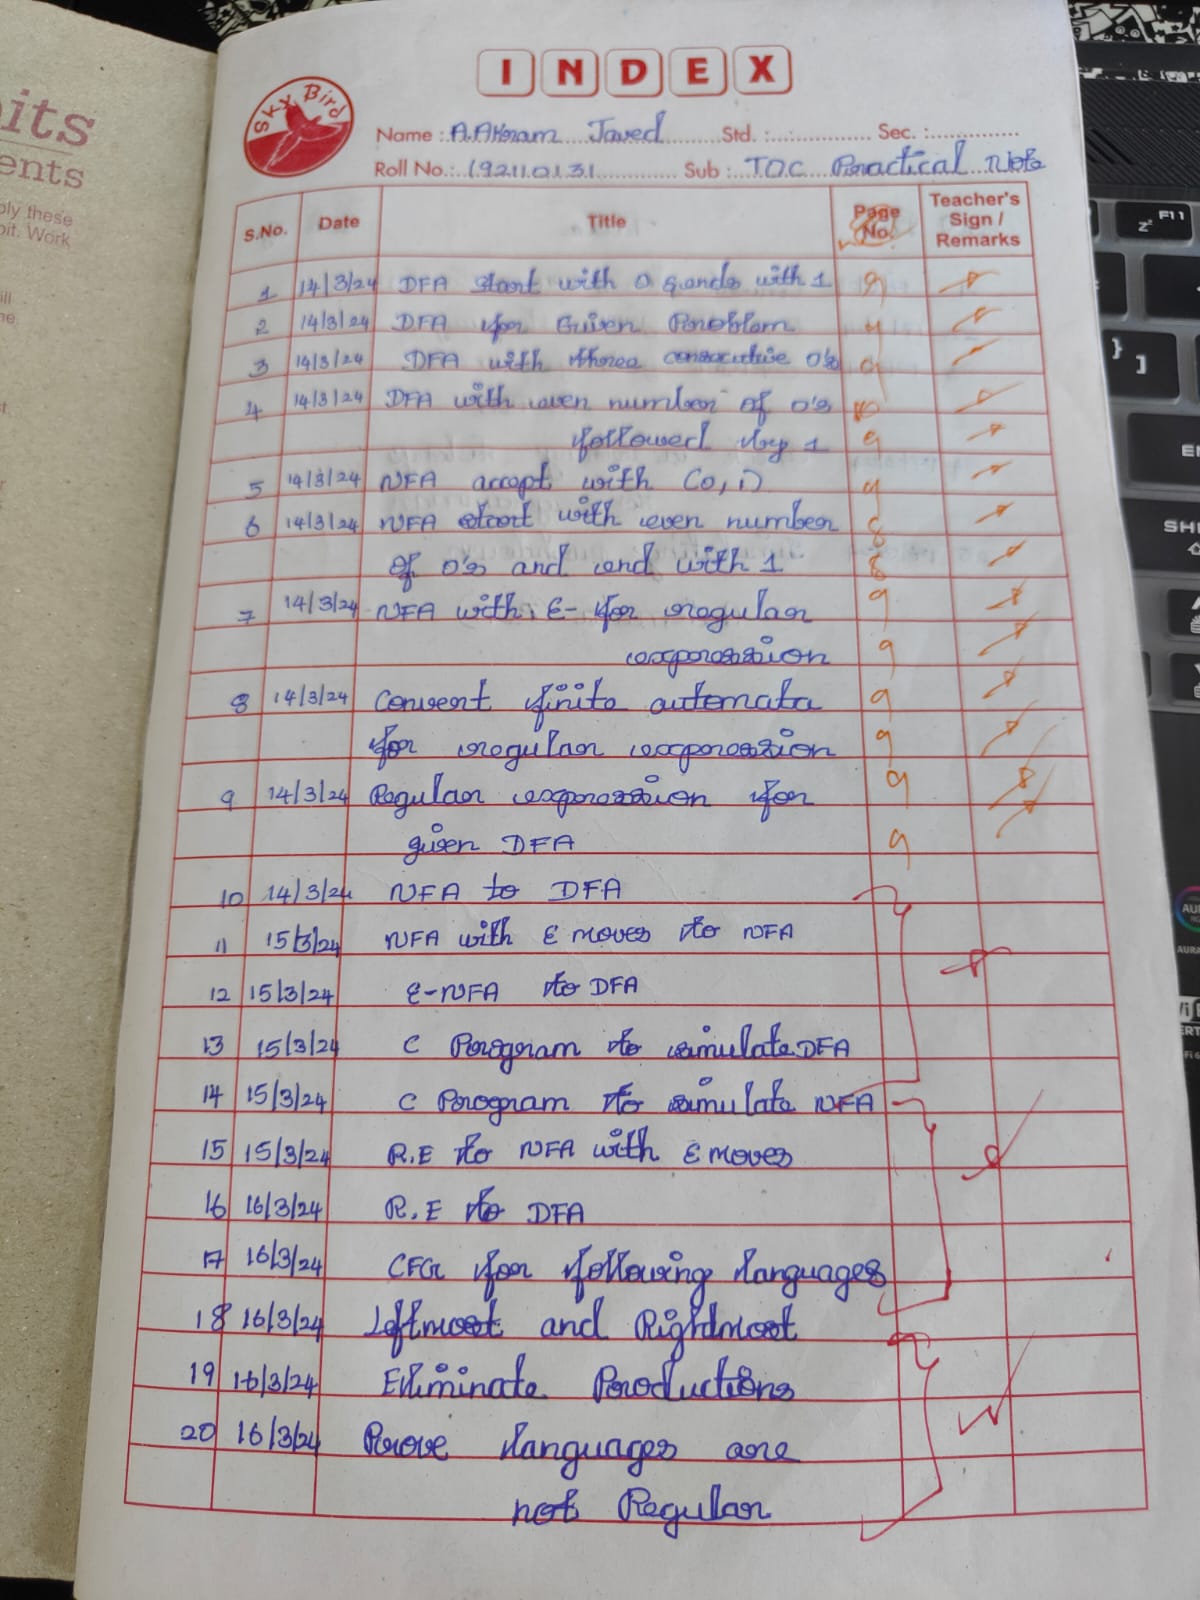 its
ents
ply these
bit. Work
INDEX
Sky Bird
Name : A.Akram Javed Std. : Sec. :
Roll No.: 192110131 Sub : TOC Practical Note
S.No. Date Title Page No. Teacher's Sign / Remarks
1 14/3/24 DFA start with 0 & ends with 1 9
2 14/3/24 DFA for Given Problem 9
3 14/3/24 DFA with three consecutive 0's 9
4 14/3/24 DFA with even number of 0's 10
followed by 1 9
5 14/3/24 NFA accept with (0,1) 9
6 14/3/24 NFA start with even number 8
of 0's and end with 1 8
7 14/3/24 NFA with ε- for regular 9
expression 9
8 14/3/24 Convert finite automata 9
for regular expression 9
9 14/3/24 Regular expression for 9
given DFA 9
10 14/3/24 NFA to DFA
11 15/3/24 NFA with ε moves to NFA
12 15/3/24 ε-NFA to DFA
13 15/3/24 C Program to simulate DFA
14 15/3/24 C Program to simulate NFA
15 15/3/24 R.E to NFA with ε moves
16 16/3/24 R.E to DFA
17 16/3/24 CFG for following languages
18 16/3/24 Leftmost and Rightmost
19 16/3/24 Eliminate Productions
20 16/3/24 Prove languages are
not Regular
F11
}
]